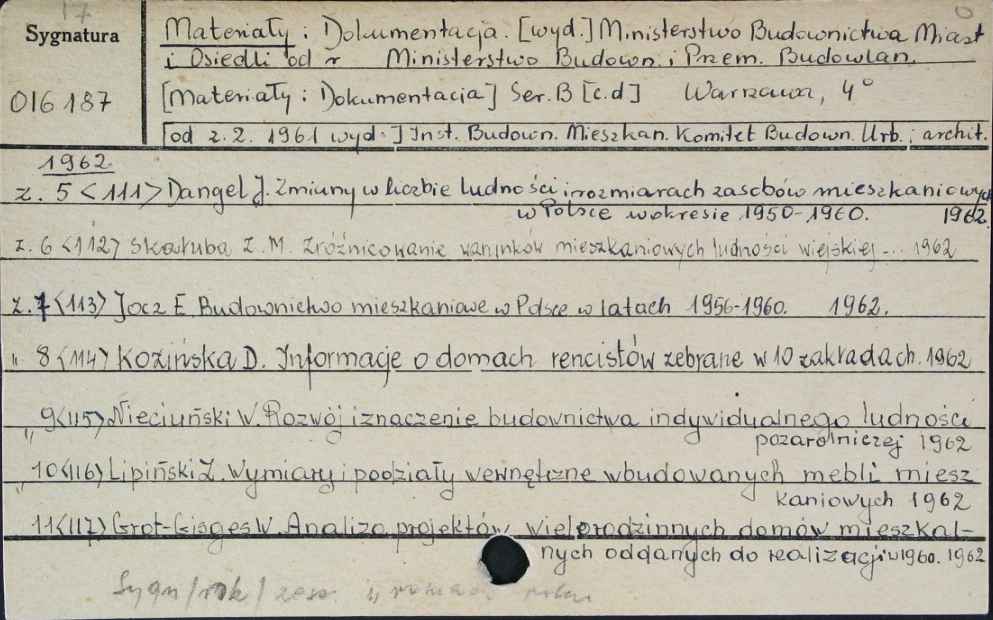 17
Sygnatura
016187
Materiały i Dokumentacja. [wyd.] Ministerstwo Budownictwa Miast
i Osiedli od r Ministerstwo Budown. i Przem. Budowlan.
[Materiały i Dokumentacja] Ser. B [c.d] Warszawa, 4°
[od z. 2. 1961 wyd.] Inst. Budown. Mieszkan. Komitet Budown. Urb. i archit.
1962
z. 5 <111> Dangel J. Zmiany w liczbie ludności i rozmiarach zasobów mieszkaniowych
w Polsce w okresie 1950-1960. 1962.
z. 6 <112> Skałuba Z. M. Zróżnicowanie warunków mieszkaniowych ludności wiejskiej ... 1962
z. 7 <113> Jocz E Budownictwo mieszkaniowe w Polsce w latach 1956-1960. 1962.
" 8 <114> Kozińska D. Informacje o domach rencistów zebrane w 10 zakładach. 1962
" 9 <115> Nieciuński W. Rozwój i znaczenie budownictwa indywidualnego ludności
pozarolniczej 1962
" 10 <116> Lipiński Z. Wymiary i podziały wewnętrzne wbudowanych mebli miesz
kaniowych 1962
11 <117> Grot-Gisges W. Analiza projektów wielorodzinnych domów mieszkal-
nych oddanych do realizacji w 1960. 1962
Sygn/rok/zesz.